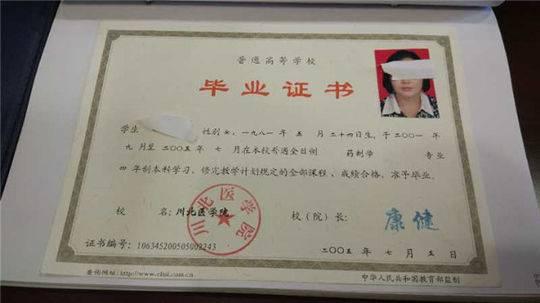 普通高等学校
毕业证书
学生 性别 女，一九八一 年 五 月 二十四日生，于二〇〇一 年
九 月至 二〇〇五 年 七 月在本校普通全日制 药剂学 专业
四 年制本科学习，修完教学计划规定的全部课程，成绩合格，准予毕业。
校 名：川北医学院 校（院）长： 康健
川北医学院
证书编号： 106345200505003243 二〇〇五 年 七 月 五 日
查询网址：http://www.chsi.com.cn 中华人民共和国教育部监制